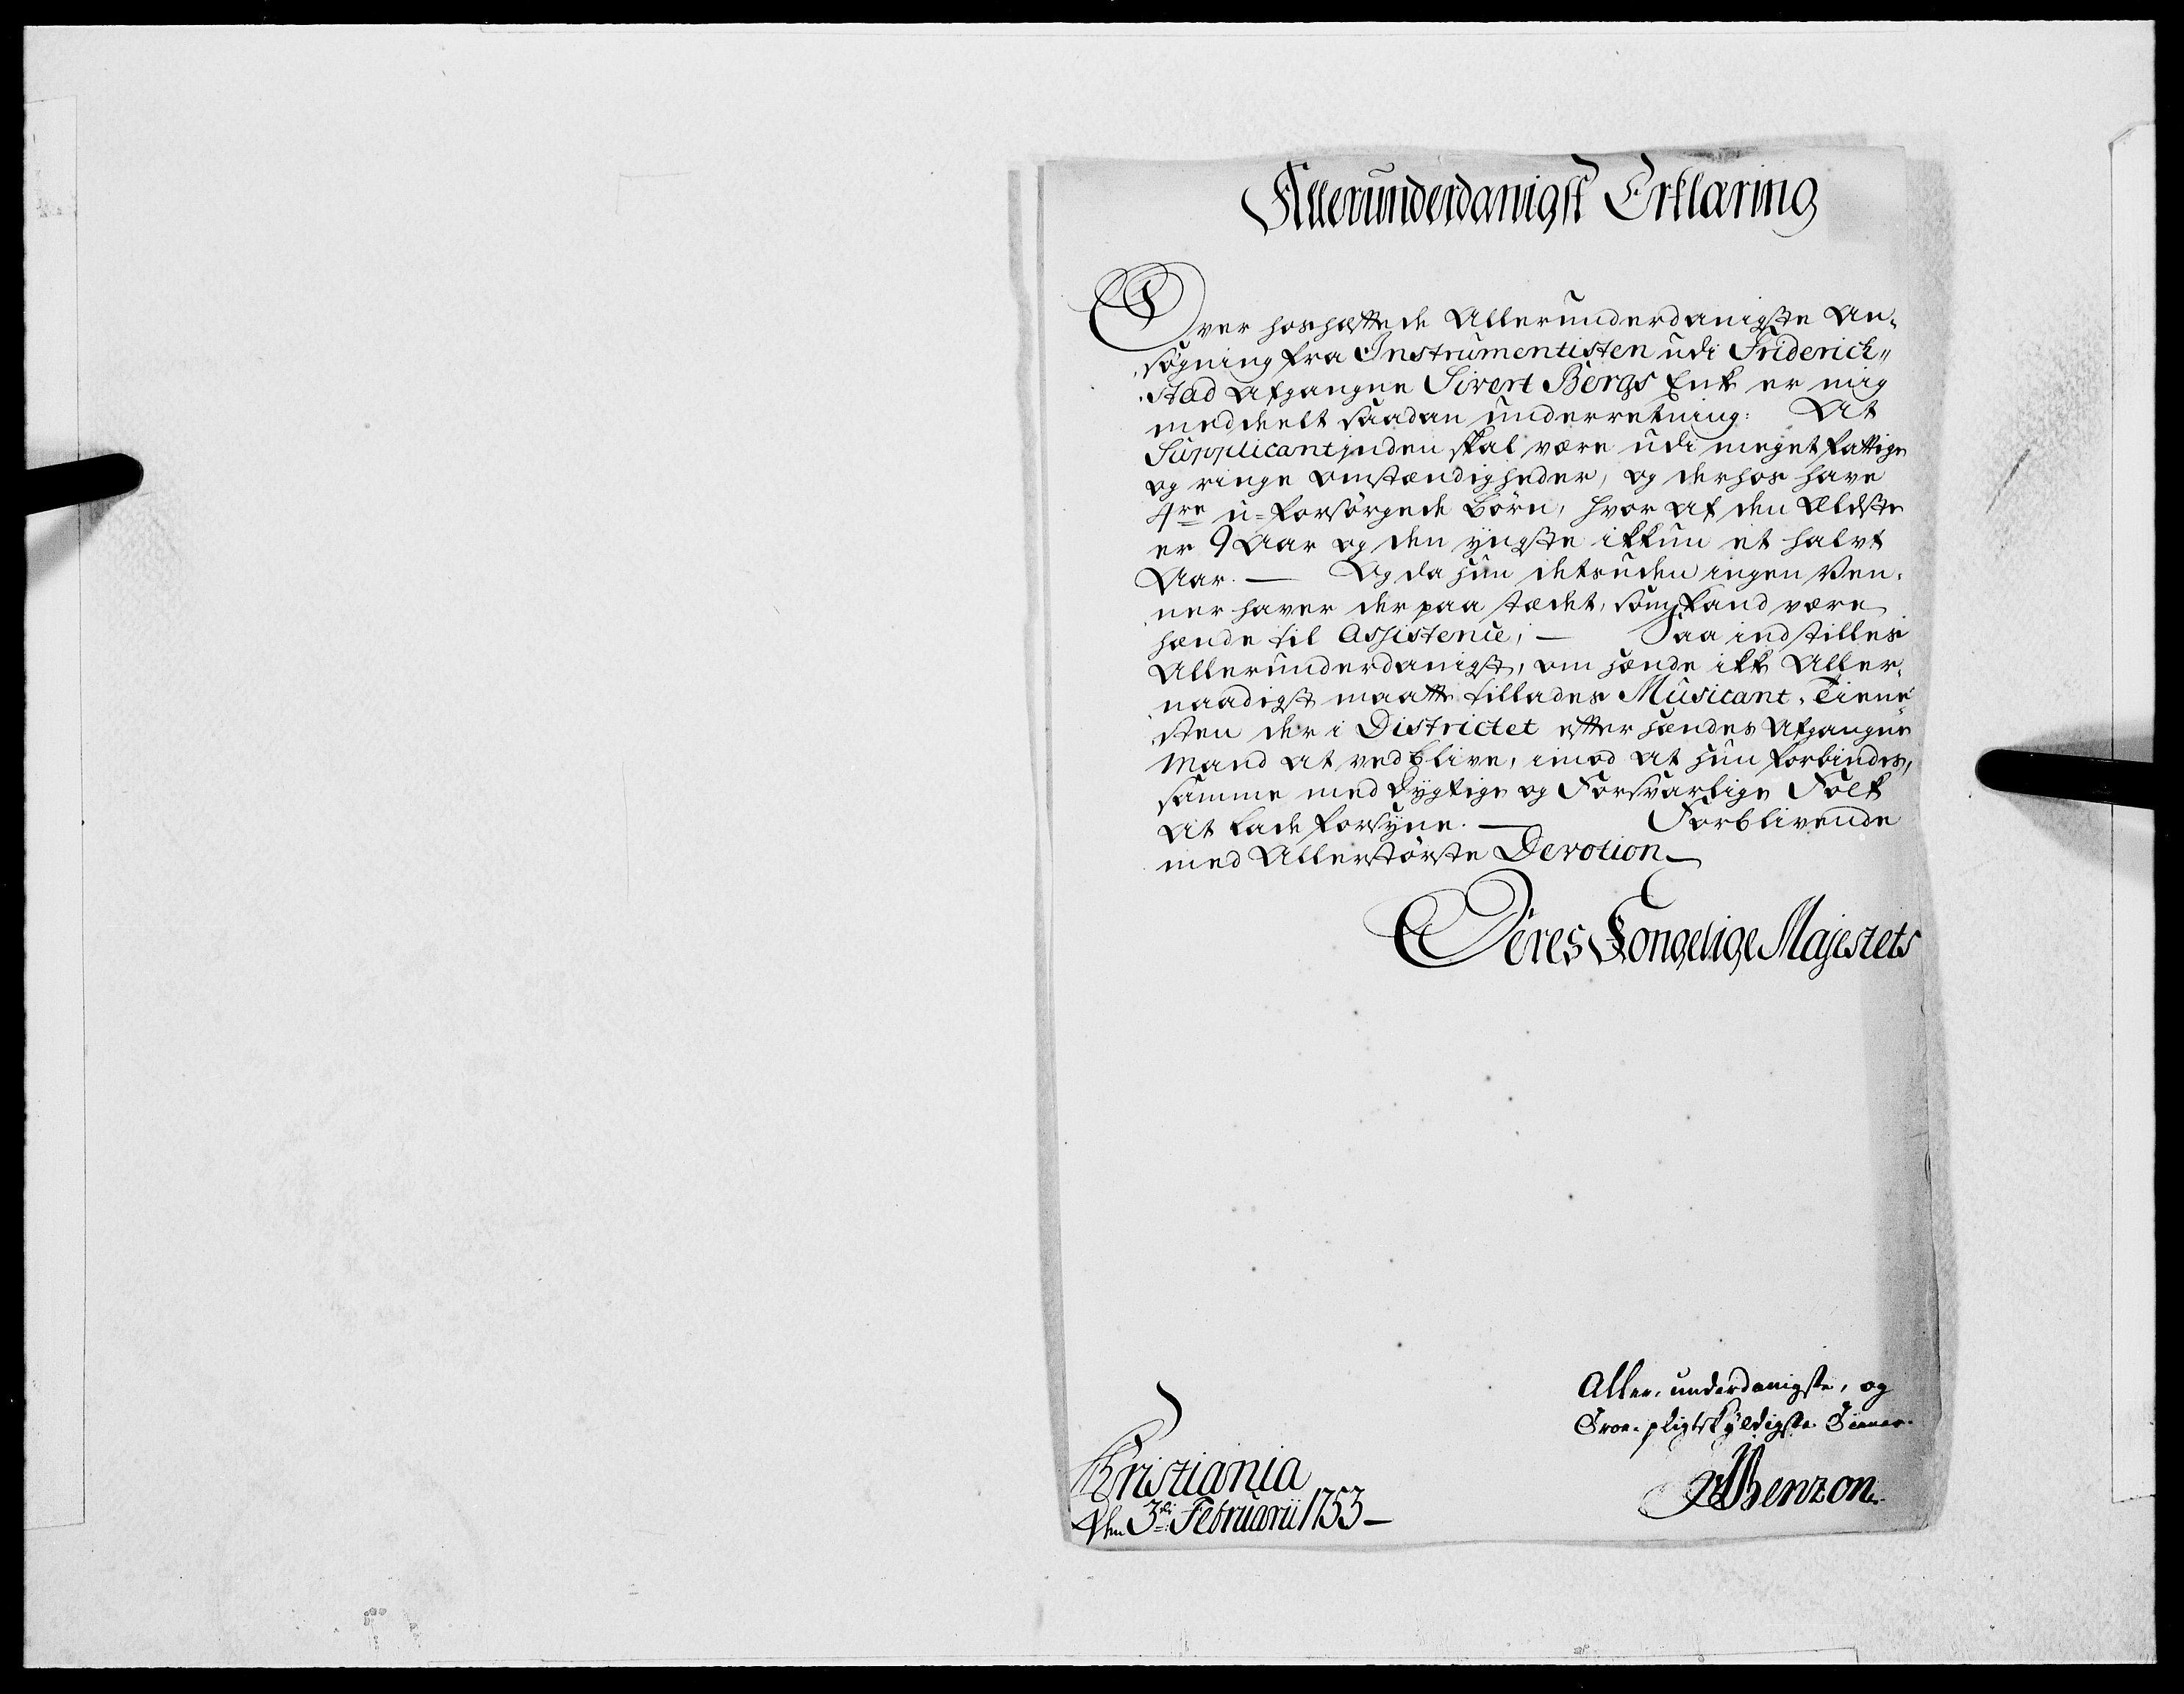 Allerunderdanigst Erklæring
Over hoshæftede Allerunderdanigste An-
søgning fra Instrumentisten udi Friderich-
stad Afgangne Sivert Bergs Enke er mig
meddeelt saadan underretning: At
Supplicantinden skal være udi meget fattige
og ringe omstændigheder, og derhos have
4re u-forsørgede børn, hvor af den Ældste
er 9 Aar og den yngste ikkun et halvt
Aar. — Og da hun desuden ingen Ven-
ner haver der paa stædet, som kand være
hænde til Assistence; — Saa indstilles
Allerunderdanigst, om hænde ikke Aller-
naadigst maatte tillades Musicant-Tiene-
sten der i Districtet efter hændes Afgangne
Mand at vedblive, imod at hun forbindes,
samme med dygtige og Forsvarlige Folk
at lade forsyne. — Forblivende
med Allerstørste Devotion —
Deres Kongelige Majestets
Aller-underdanigste, og
Troe-pligtskyldigste Tiener
Christiania
den 3de Februarii 1753 —
Benzon